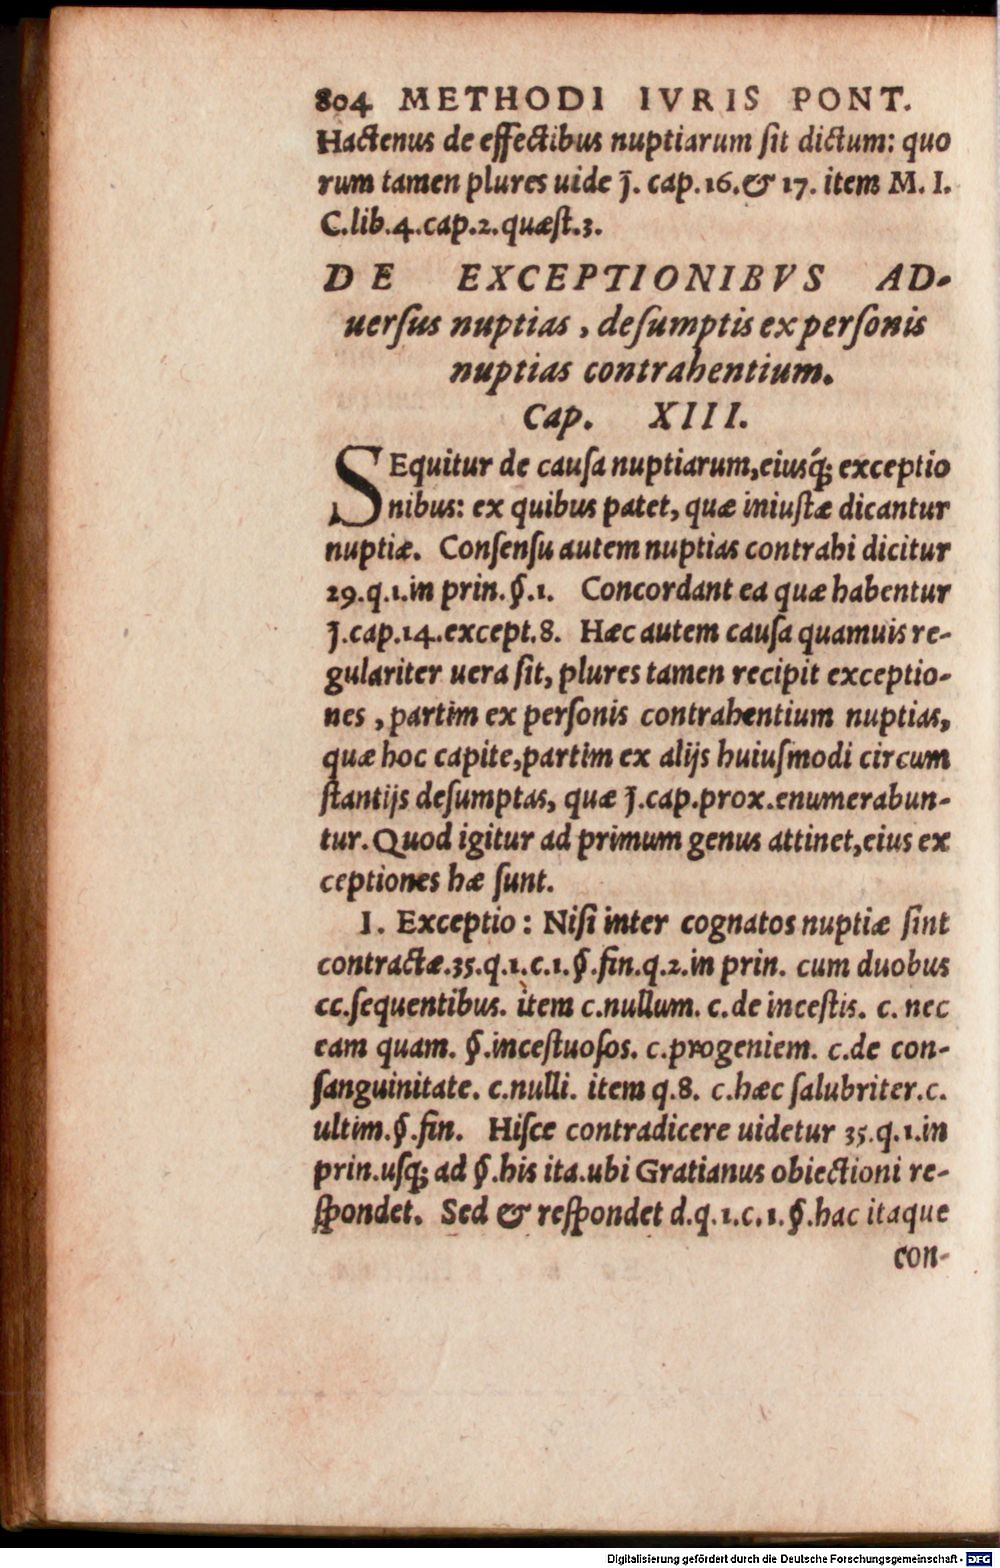 804 METHODI IVRIS PONT.
Hactenus de effectibus nuptiarum ſit dictum: quo
rum tamen plures uide j̄. cap.16.& 17. item M. I.
C.lib.4.cap.2.quæſt.3.
DE EXCEPTIONIBVS AD-
uerſus nuptias, deſumptis ex perſonis
nuptias contrahentium.
Cap. XIII.
SEquitur de cauſa nuptiarum,eiusq́; exceptio
nibus: ex quibus patet, quæ iniuſtæ dicantur
nuptiæ. Conſenſu autem nuptias contrahi dicitur
29.q.1.in prin.§.1. Concordant ea quæ habentur
j̄.cap.14.except.8. Hæc autem cauſa quamuis re-
gulariter uera ſit, plures tamen recipit exceptio-
nes, partim ex perſonis contrahentium nuptias,
quæ hoc capite,partim ex alijs huiuſmodi circum
ſtantijs deſumptas, quæ j̄.cap.prox.enumerabun-
tur. Quod igitur ad primum genus attinet,eius ex
ceptiones hæ ſunt.
I. Exceptio: Niſi inter cognatos nuptiæ ſint
contractæ.35.q.1.c.1.§.fin.q.2.in prin. cum duobus
cc.ſequentibus. item c.nullum. c.de inceſtis. c. nec
eam quam. §.inceſtuoſos. c.progeniem. c.de con-
ſanguinitate. c.nulli. item q.8. c.hæc ſalubriter.c.
ultim.§.fin. Hiſce contradicere uidetur 35.q.1.in
prin.uſq; ad §.his ita.ubi Gratianus obiectioni re-
ſpondet. Sed & reſpondet d.q.1.c.1.§.hac itaque
con-
Digitalisierung gefördert durch die Deutsche Forschungsgemeinschaft - DFG